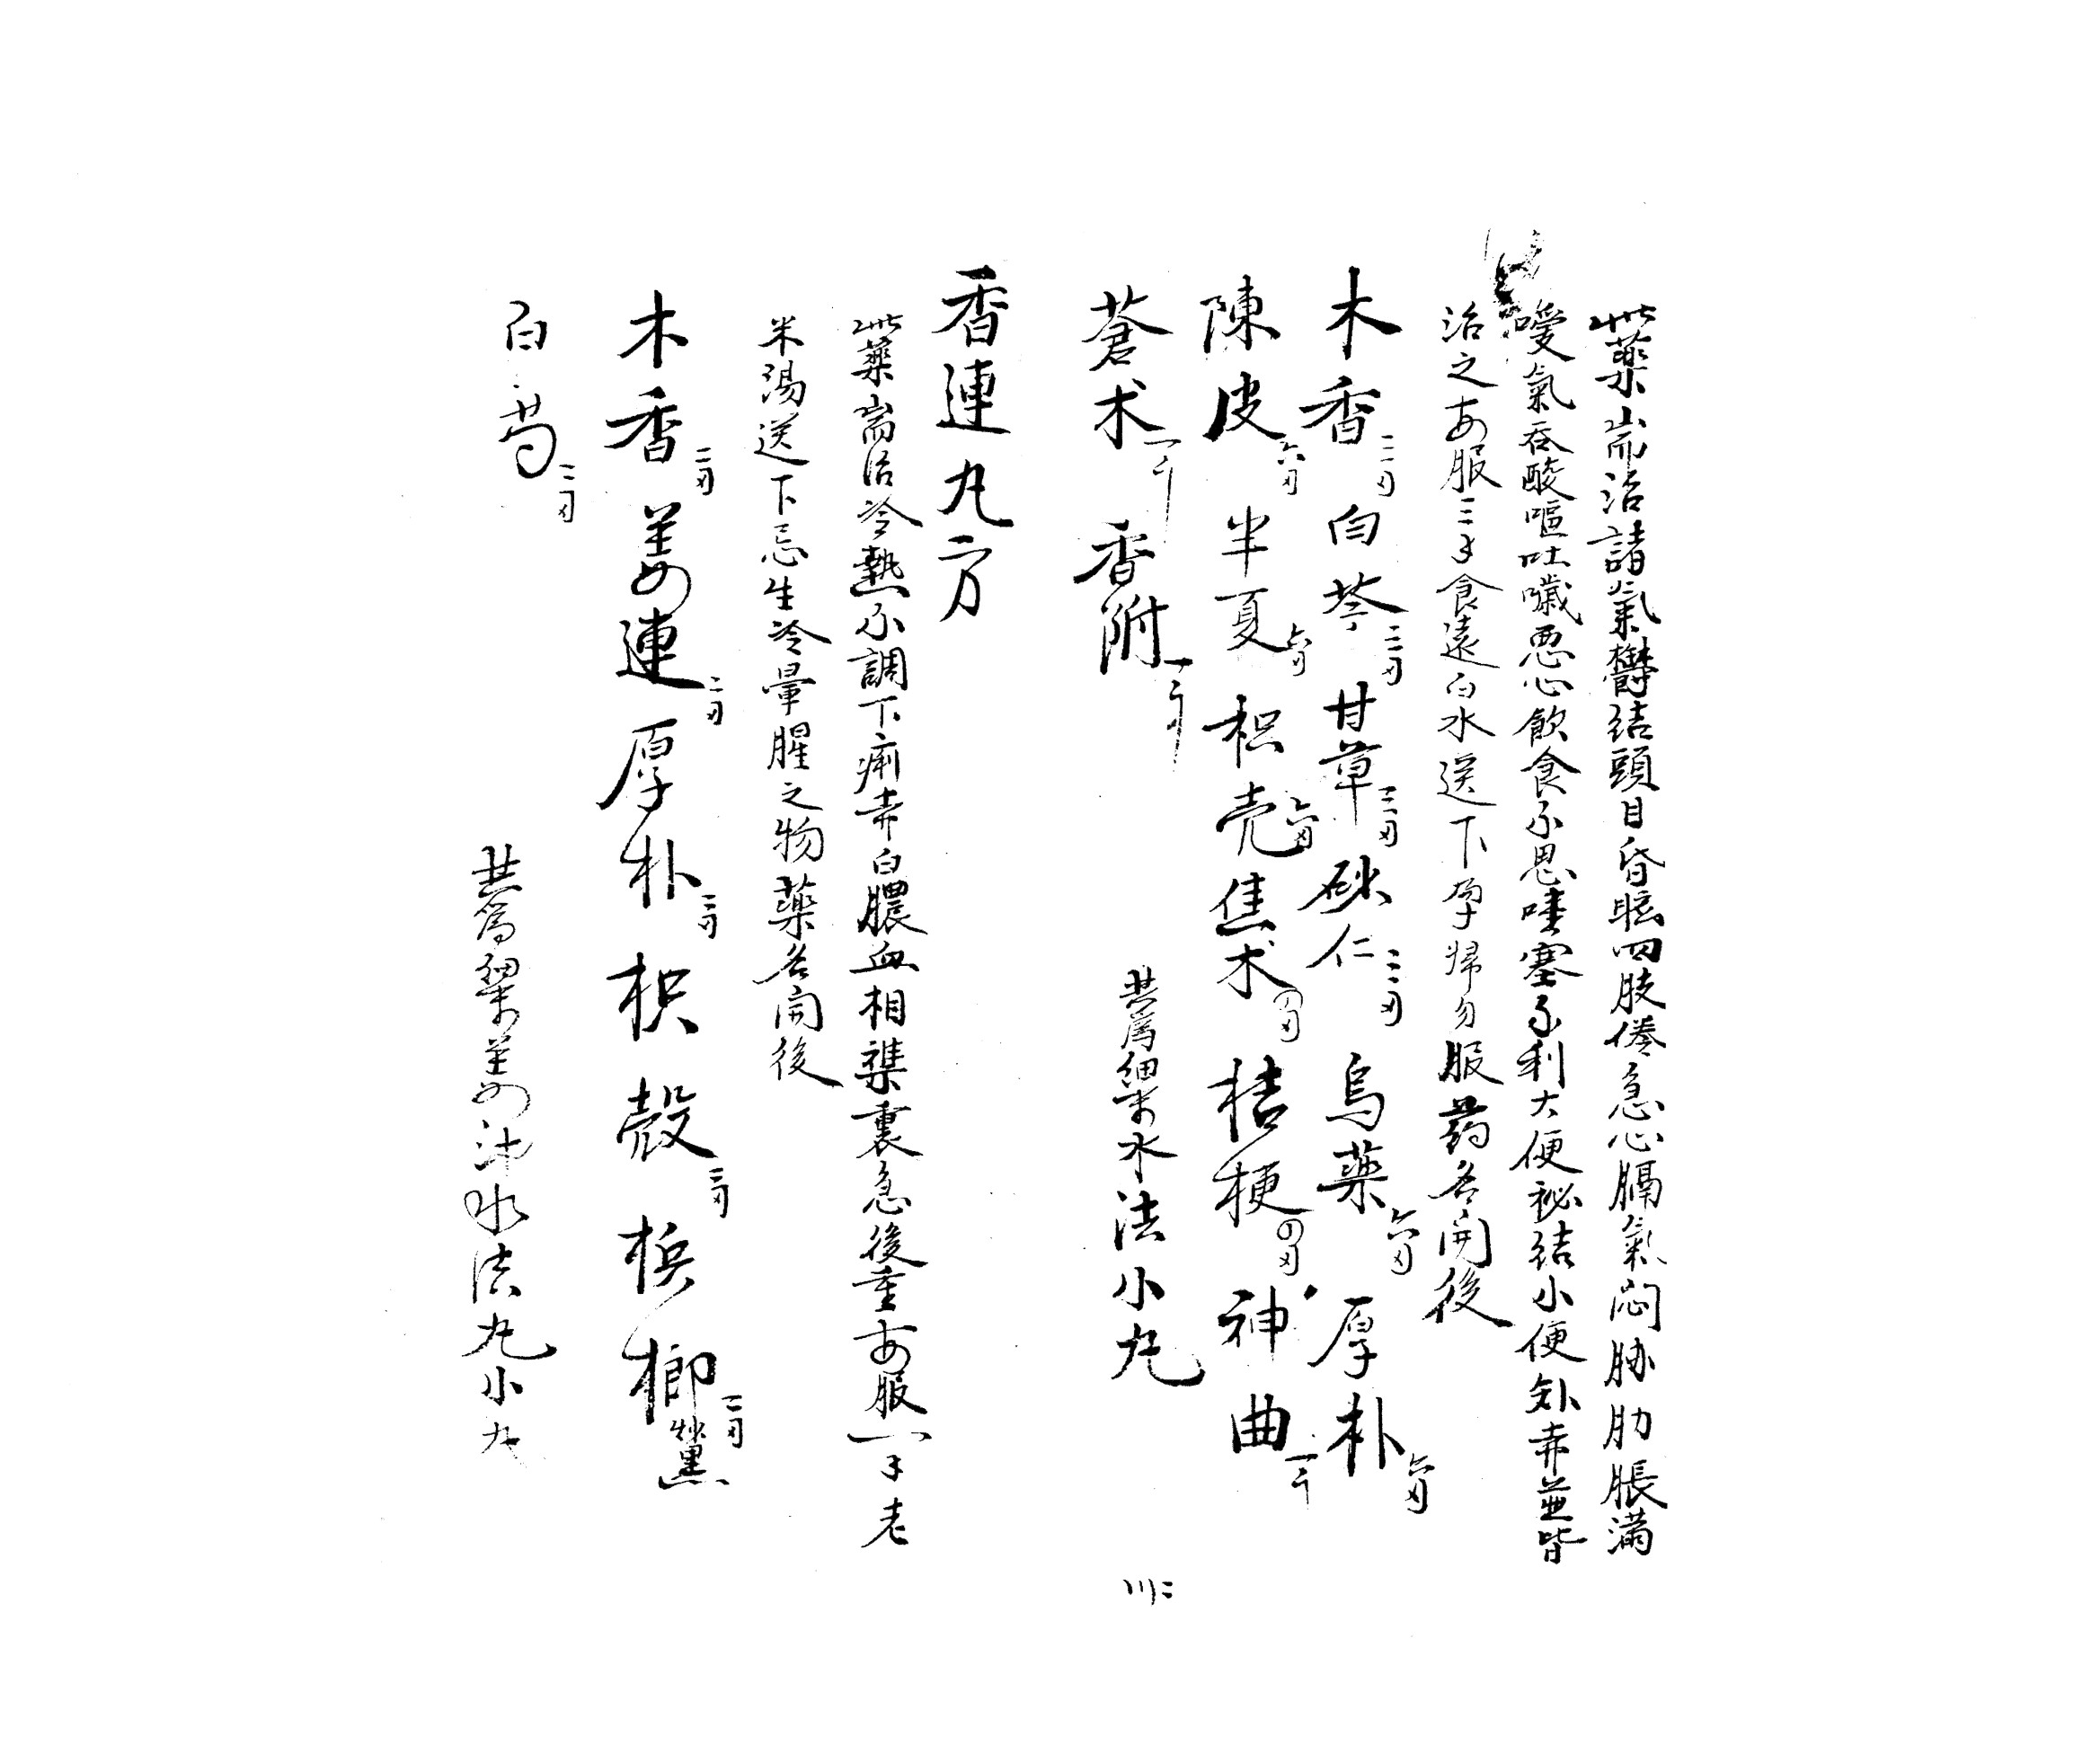 此藥耑治諸氣欝結頭目昏眩四肢倦急心膈氣悶胁肋脹滿
噯氣吞酸嘔吐噦惡心飲食不思噎塞不利大便祕結小便並皆
治之每服三子食遠白水送下孕婦勿服药名開後
木香二刄 白苓二刄 甘草二刄 砂仁二刄 烏藥六刄 厚朴六刄
陳皮六刄 半夏六刄 枳壳六刄 焦术四刄 桔梗四刄 神曲一斤
蒼术一斤 香附一斤 共為細末水法小丸
香連丸方
此藥耑治冷熱不調下痢赤白膿血相襍裏急後重每服一子老
米湯送下忌生冷暈腥之物藥名開後
木香二刄 姜連二刄 厚朴二刄 枳殻二刄 梹榔二刄 炒黑
白芍二刄 共為細末姜汁水法丸小丸
川二